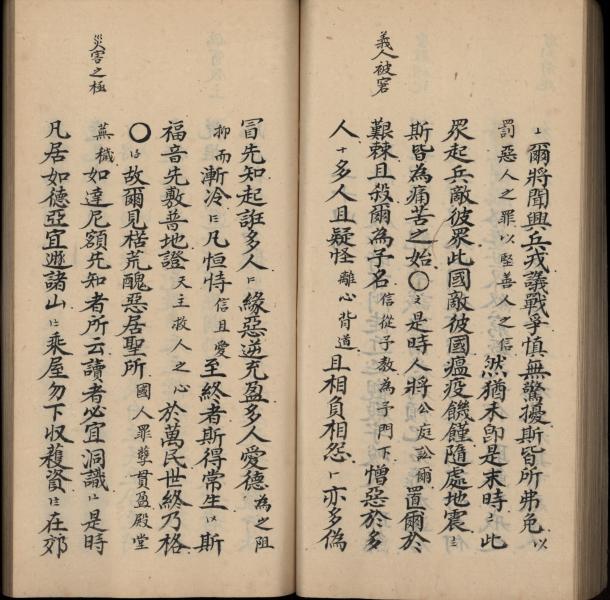 義人被窘
爾將聞興兵戎議戰爭慎無驚擾斯皆所弗免以
罰惡人之罪以堅善人之信然猶未卽是末時此
眾起兵敵彼眾此國敵彼國瘟疫饑饉隨處地震
斯皆為痛苦之始〇是時人將公庭訟爾置爾於
艱棘且殺爾為予名信從予教為予門下憎惡於多
人十多人且疑怪離心背道且相負相怨亦多偽
災害之極
冒先知起誑多人緣惡逆充盈多人愛德為之阻
抑而漸冷凡恒恃信且愛至終者斯得常生斯
福音先敷普地證天主救人之心於萬民世終乃格
〇故爾見楛荒醜惡居聖所國人罪孽貫盈殿堂
蕪穢如達尼額先知者所云讀者必宜洞識是時
凡居如德亞宜遯諸山乘屋勿下收穫資在郊